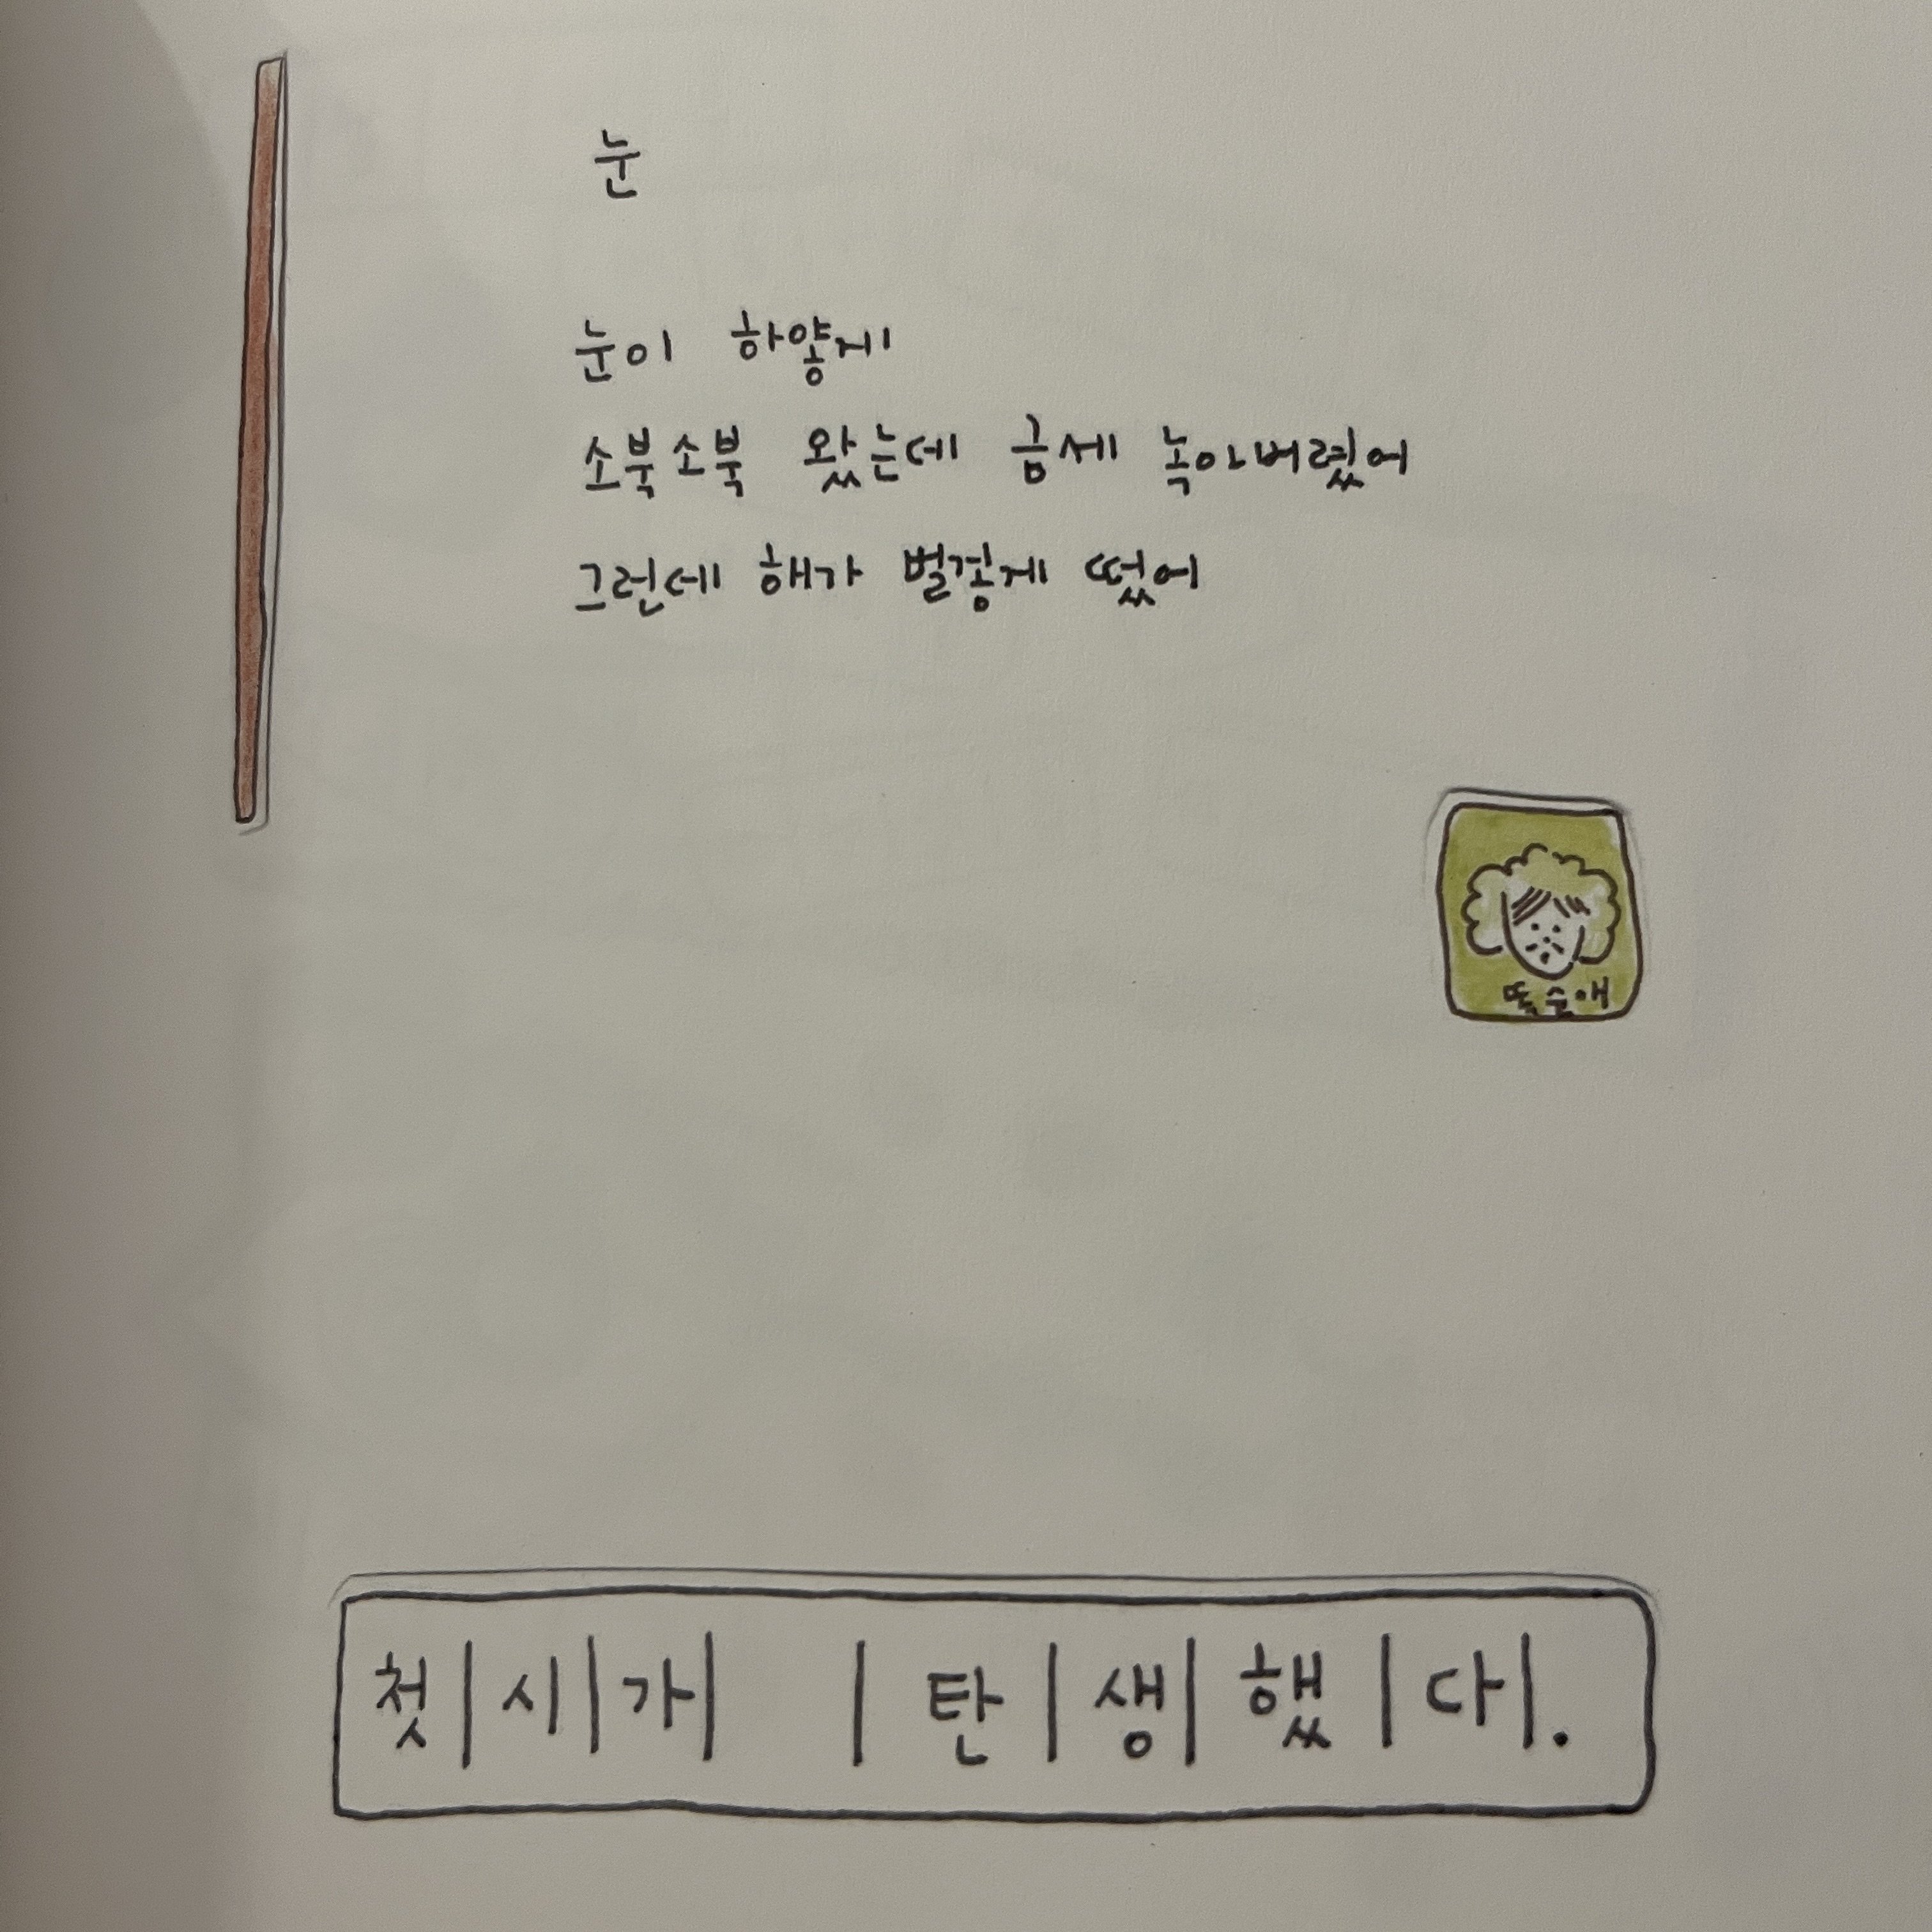 눈
눈이 하얗게
소북소북 왔는데 금세 녹아버렸어
그런데 해가 벌겋게 떴어
똑순애
첫 시 가 탄 생 했 다.